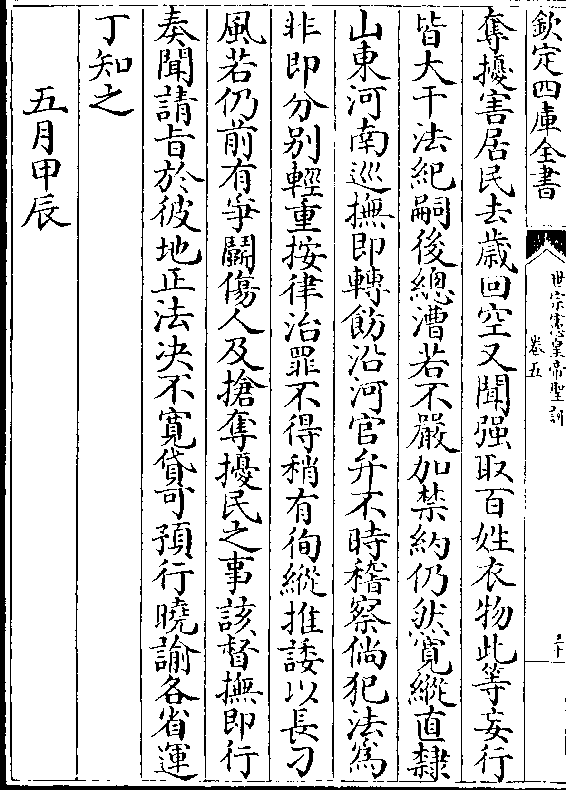 欽定四庫全書
世宗憲皇帝聖訓
卷五
奪擾害居民去歲回空又聞强取百姓衣物此等妄行
皆大干法紀嗣後總漕若不嚴加禁約仍然寛縱直隸
山東河南巡撫即轉飭沿河官弁不時稽察倘犯法為
非即分别輕重按律治罪不得稍有徇縱推諉以長刁
風若仍前有爭鬭傷人及搶奪擾民之事該督撫即行
奏聞請㫖於彼地正法决不寛貸可預行曉諭各省運
丁知之
五月甲辰